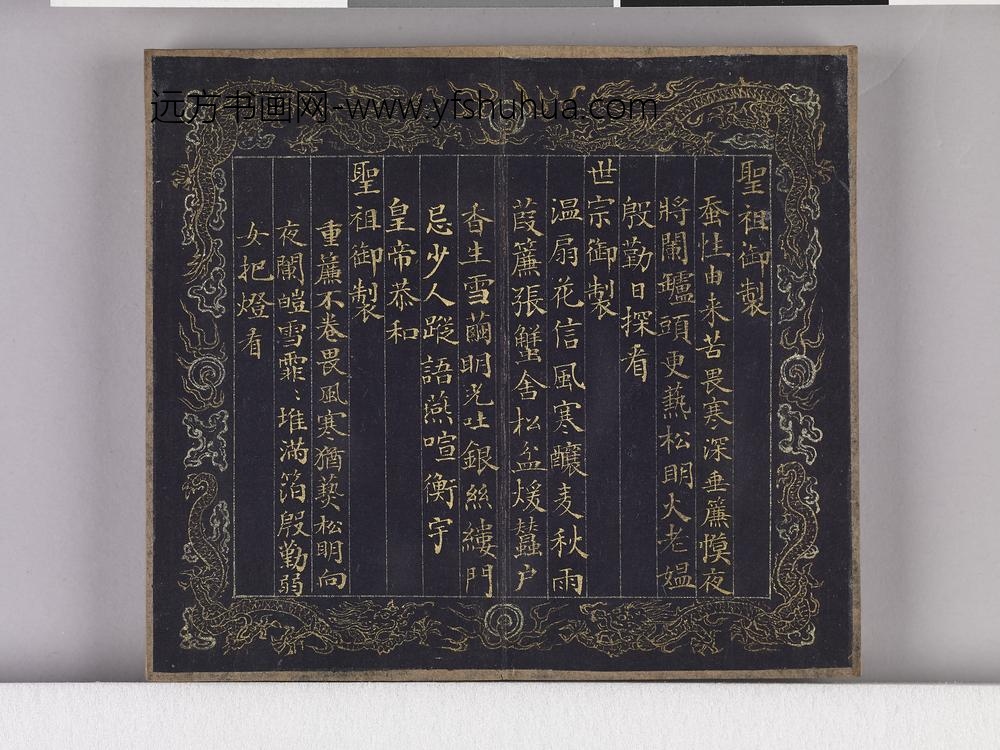 远方书画网-www.yfshuhua.com
聖祖御製
蚕性由来苦畏寒深垂簾幙夜
將闌鑪頭更爇松明火老媼
殷勤日探看
世宗御製
温扇花信風寒釀麦秋雨
葭簾張蟹舍松盆煖蠶户
香生雪繭明光吐銀絲縷門
忌少人蹤語燕喧衡宇
皇帝恭和
聖祖御製
重簾不卷畏風寒猶爇松明向
夜闌皚雪霏〻堆滿箔殷勤弱
女把燈看